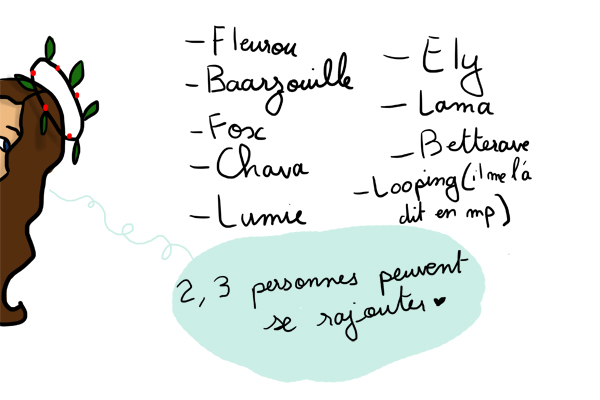 - Fleurou
- Baarzouille
- Fox
- Chava
- Lumie
- Ely
- Lama
- Betterave
- Looping (il me l'a
dit en mp)
2, 3 personnes peuvent
se rajouter ♥